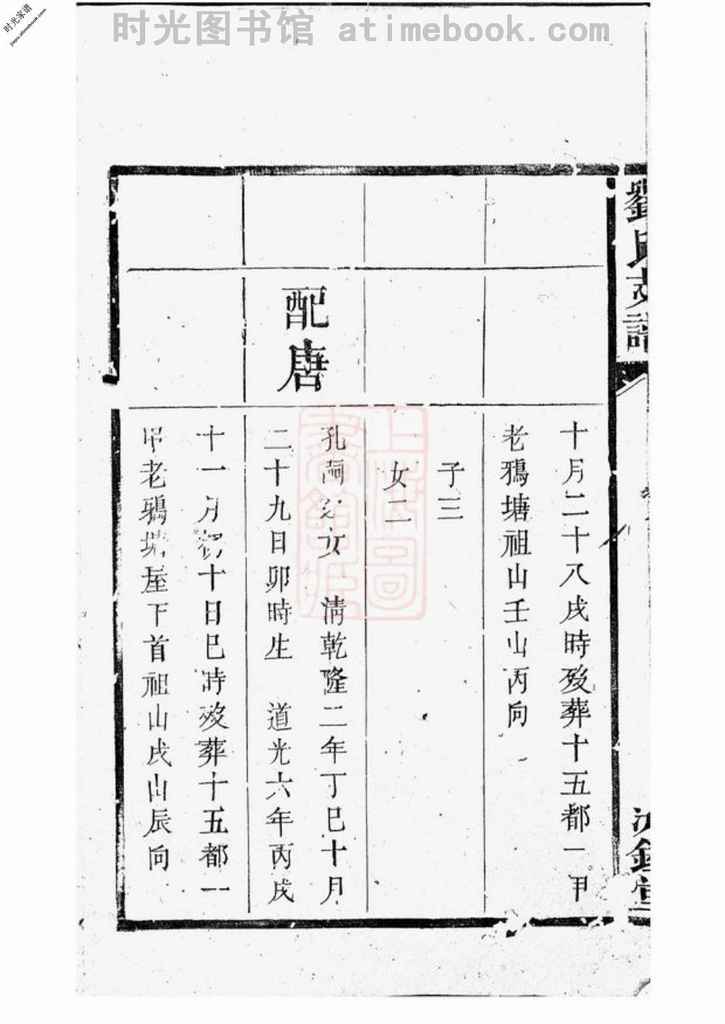 时光图书馆 atimebook.com
时光家谱
劉氏支譜
十月二十八戌時歿葬十五都一甲
老鴉塘祖山壬山丙向
子三
女二
配唐
孔 女 清乾隆二年丁巳十月
二十九日卯時生 道光六年丙戌
十一月初十日巳時歿葬十五都一
甲老鴉塘屋下首祖山戌山辰向
上海圖書館藏